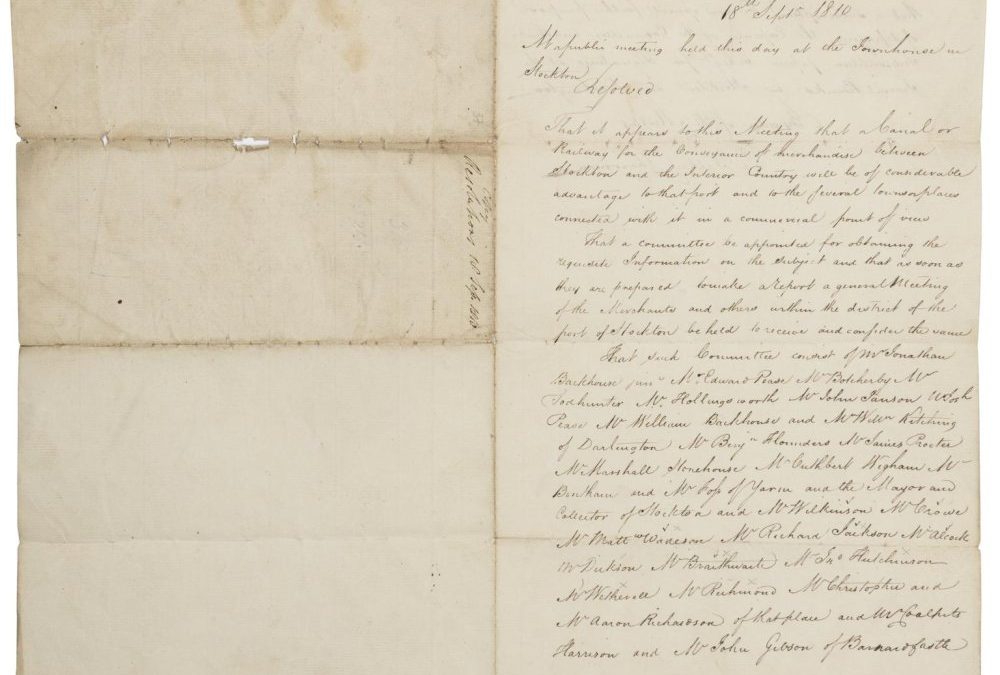 Copy
Resolutions 18 Sept 1810
18th Sept 1810
At a public meeting held this day at the Townhouse in
Stockton
Resolved
That it appears to this Meeting that a Canal or
Railway for the Conveyance of merchandise between
Stockton and the Interior Country will be of considerable
advantage to that port and to the several towns & places
connected with it in a commercial point of view
That a committee be appointed for obtaining the
requisite Information on the Subject and that as soon as
they are prepared to make a report a general Meeting
of the Merchants and others within the district of the
port of Stockton be held to receive and consider the same
That such Committee consist of Mr Jonathan
Backhouse junr Mr Edward Pease Mr Botcherby Mr
Todhunter Mr Hollingsworth Mr John Ianson Mr Josh
Pease Mr William Backhouse and Mr Willm Kitching
of Darlington Mr Benjn Flounders Mr James Procter
Mr Marshall Stonehouse Mr Cuthbert Wigham Mr
Bentham and Mr Coss of Yarm and the Mayor and
Collector of Stockton and Mr Wilkinson Mr Crowe
Mr Mattw Wadeson Mr Richard Jackson Mr Alcock
Mr Dickson Mr Braithwaite Mr Jno Hutchinson
Mr Wetherell Mr Richmond Mr Christopher and
Mr Aaron Richardson of that place and Mr Colpits
Harrison and Mr John Gibson of Barnard Castle